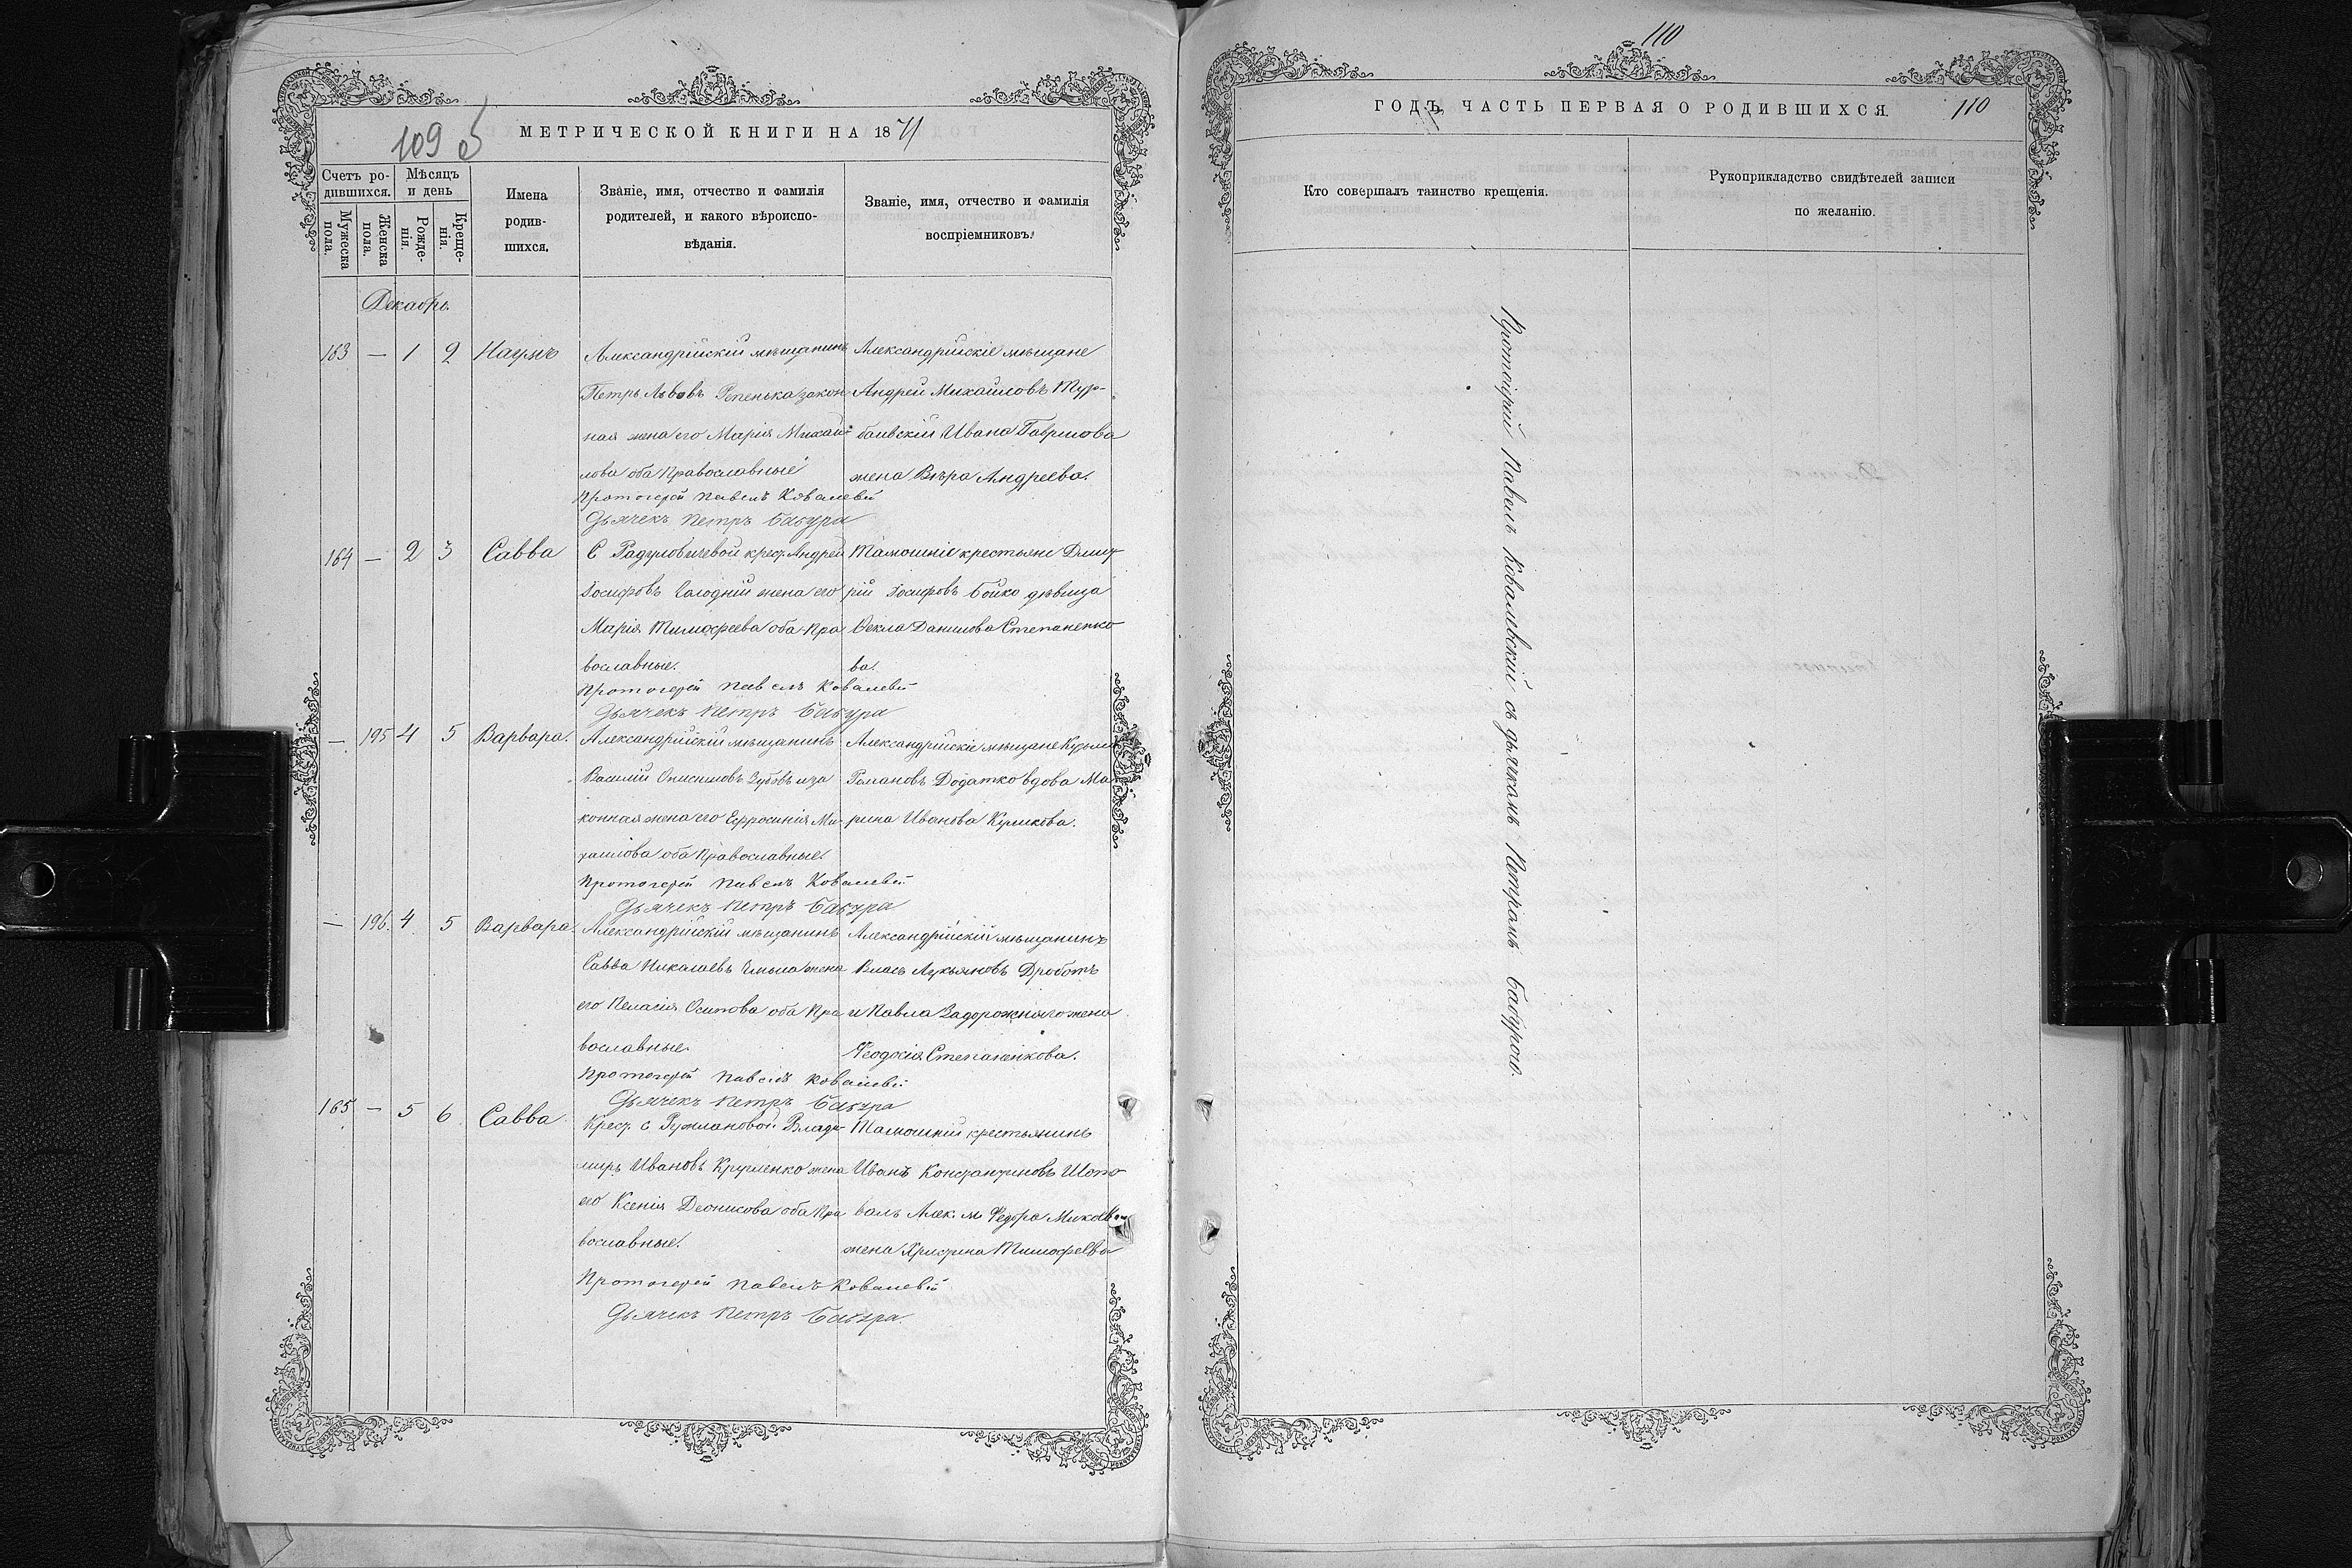 109 б
МЕТРИЧЕСКОЙ КНИГИ НА 1871
Счетъ родившихся.
Мѣсяцъ и день
Имена родившихся.
Званіе, имя, отчество и фамилія родителей, и какого вѣроисповѣданія.
Званіе, имя, отчество и фамилія воспріемниковъ.
Мужеска пола.
Женска пола.
Рожденія.
Крещенія.
Декабрь.
163 — 1 2 Наумъ
Александрійскій мѣщанинъ
Петръ Львовъ Репенька закон
ная жена его Марія Михаи
лова оба Православные
Протоіерей Павелъ Ковалевскій
Дьячекъ Петръ Бабура
Александрійскіе мѣщане
Андрей Михайловъ Тур-
баевскій Ивана Гаврилова
жена Вѣра Андреева.
164 — 2 3 Савва
С Радуловичевой крест Андрей
Іосифовъ жена его
Марія Тимофеева оба Пра
вославные.
Протоіерей Павелъ Ковалевскій
Дьячекъ Петръ Бабура
Тамошніе крестьяне Димит
рій Іосифовъ Бойко дѣвица
Ѳекла Данилова Степаненко
ва.
— 195 4 5 Варвара.
Александрійскій мѣщанинъ
Василій Зубовъ и за
конная жена его Ефросинія Ми-
хаилова оба Православные.
Протоіерей Павелъ Ковалевскій
Дьячекъ Петръ Бабура
Александрійскіе мѣщане Кузьма
Романовъ Додатко вдова Ма
рина Иванова Куликова.
— 196. 4. 5 Варвара.
Александрійскій мѣщанинъ
Савва Николаевъ жена
его Пелагія Осипова оба Пра
вославные.
Протоіерей Павелъ Ковалевскій
Дьячекъ Петръ Бабура
Александрійскій мѣщанинъ
Власъ Лукьяновъ Дроботъ
и Павла Задорожняго жена
Ѳеодосія Степаненкова.
165 — 5 6 Савва
Крест с Ружиановой Влади-
миръ Ивановъ Кругленко жена
его Ксенія Деонисова оба Пра
вославные.
Протоіерей Павелъ Ковалевскій
Дьячекъ Петръ Бабура.
Тамошній крестьянинъ
Иванъ Константиновъ Шопо
валъ Алек. м Федора
жена Христина Тимофеева
110
ГОДЪ, ЧАСТЬ ПЕРВАЯ О РОДИВШИХСЯ.
110
Кто совершалъ таинство крещенія.
Рукоприкладство свидѣтелей записи по желанію.
Протоіерей Павелъ Ковалевскій съ дьячкомъ Петромъ Бабурою.